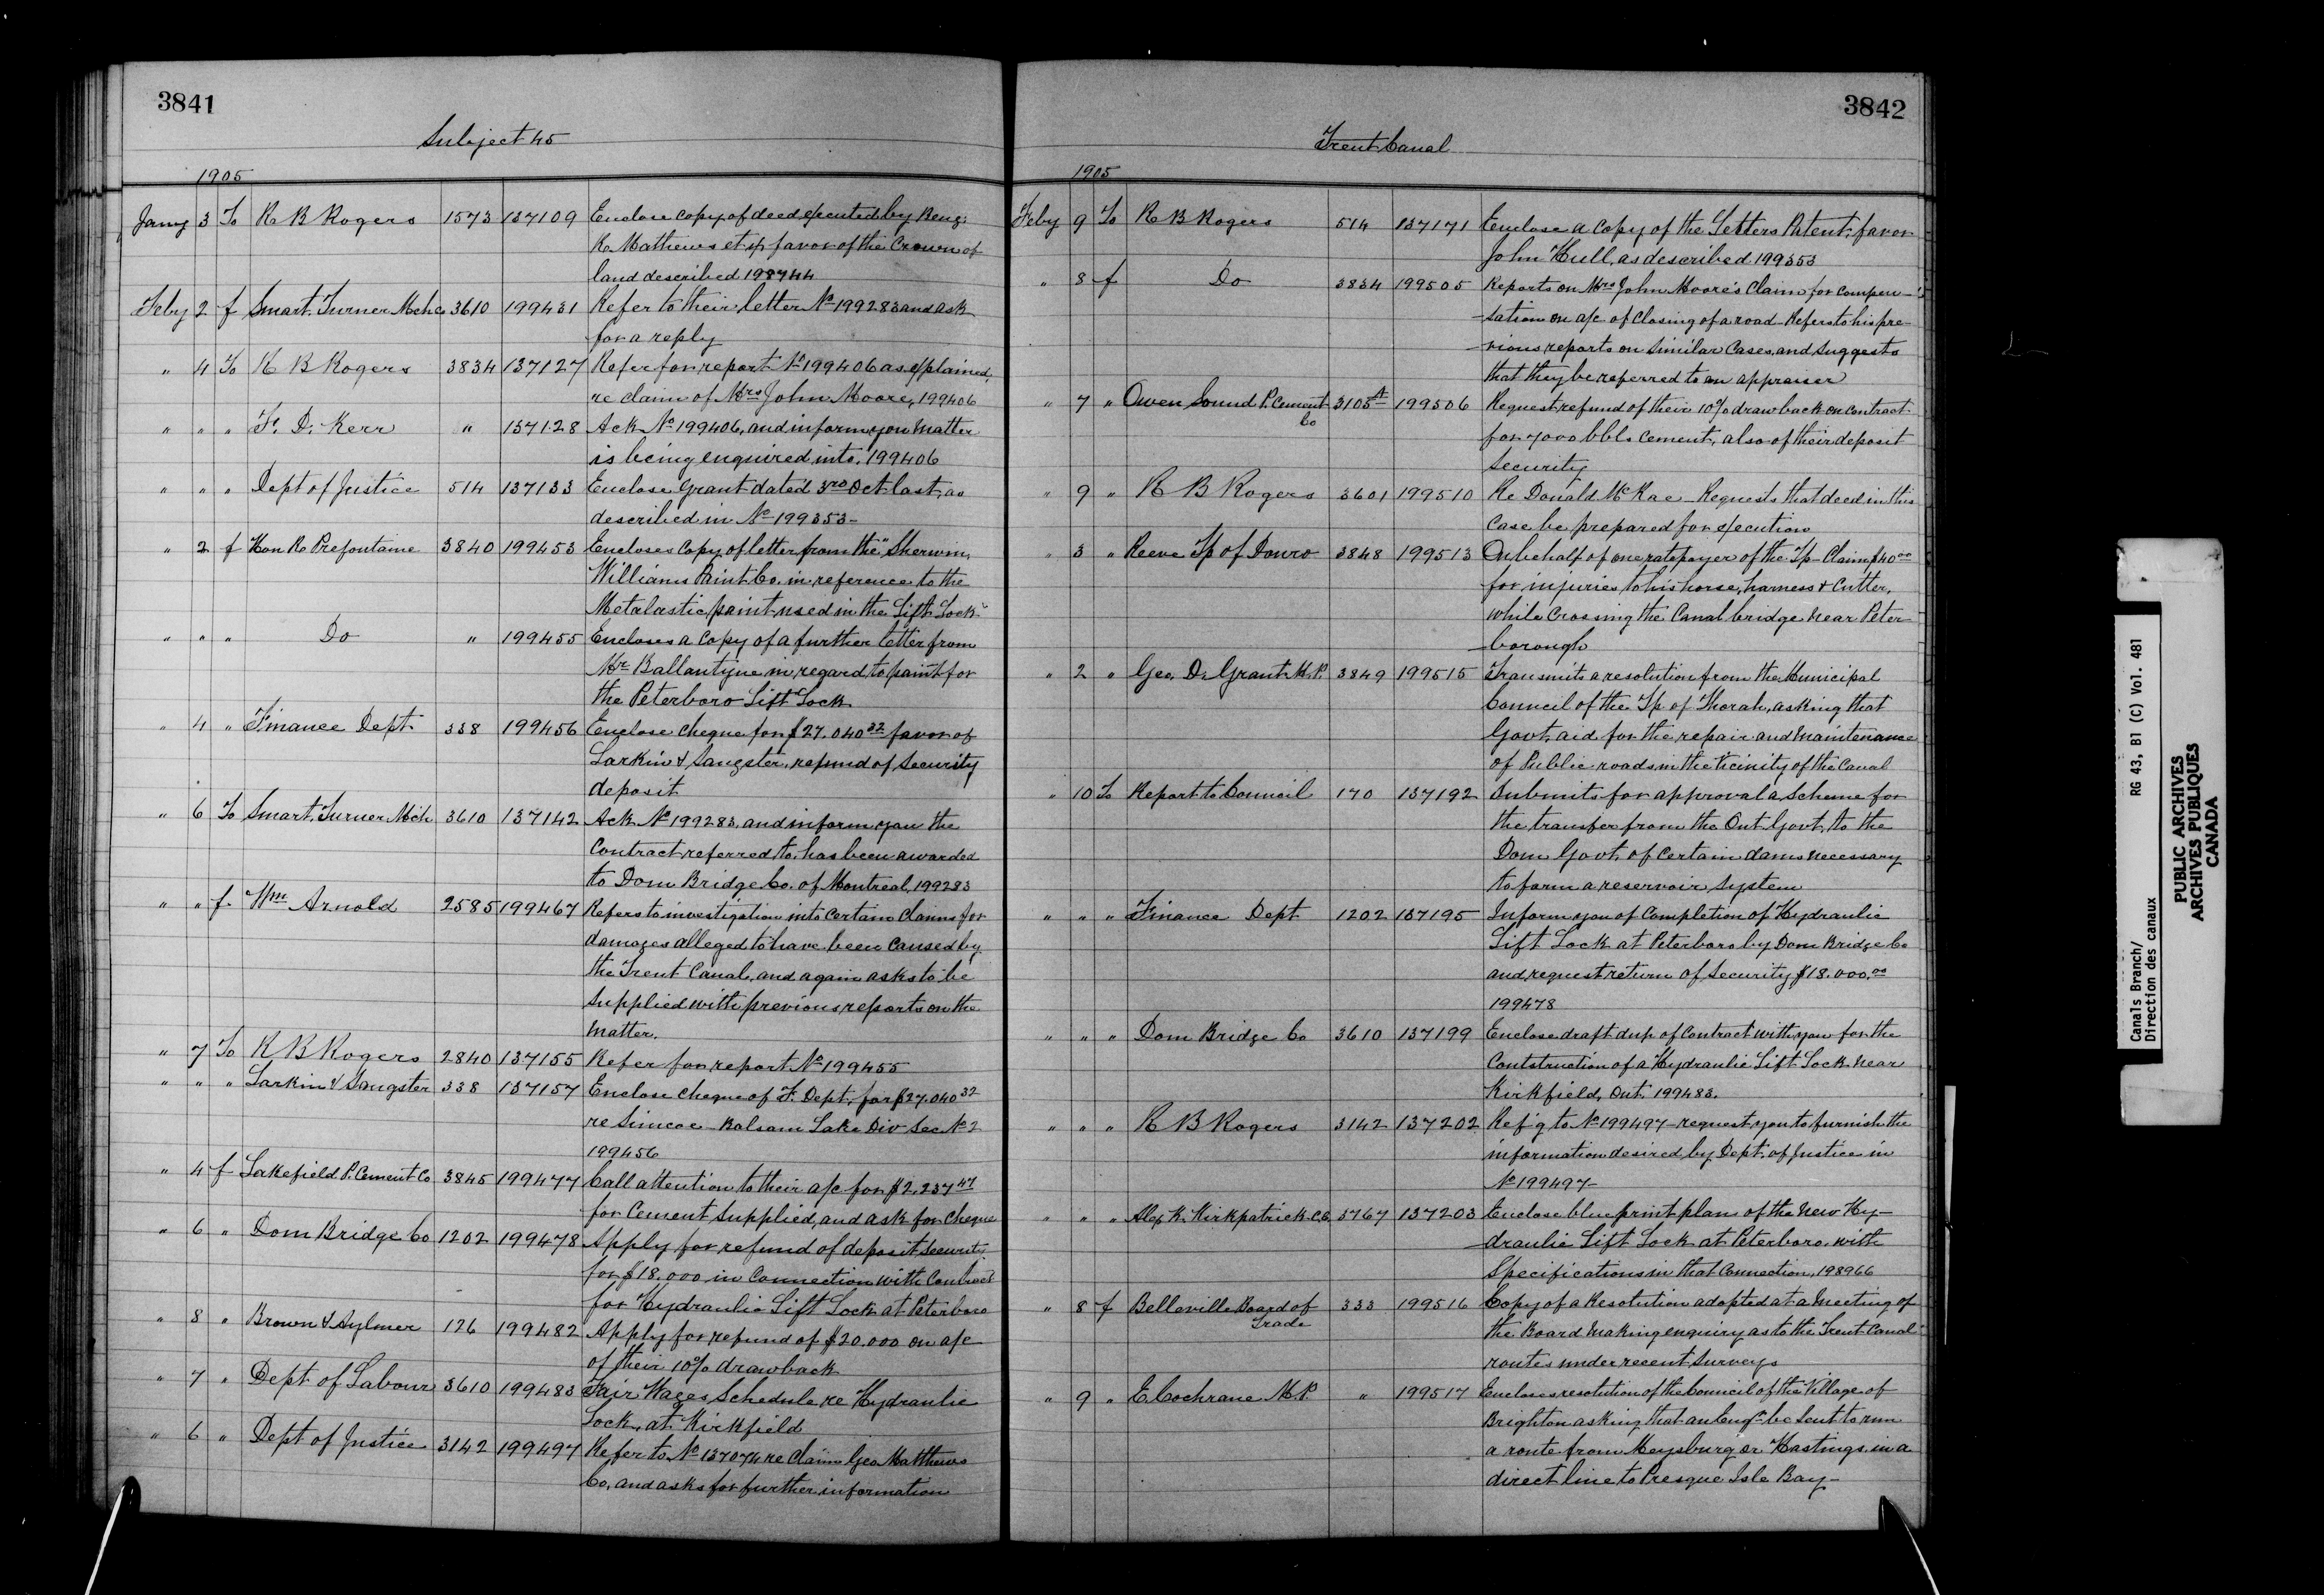 3841
Subject 45
1905
Jany 3 To R B Rogers 1573 137109 Enclose copy of deed executed by Benj:
R. Mathews et ux favor of the Crown of
land described 198744
Feby 2 f Smart. Turner Mch Co 3610 199431 Refer to their letter No 199283 and ask
for a reply
" 4 To R B Rogers 3834 137127 Refer for report No 199406 as explained,
re claim of Mrs John Moore, 199406
" " " F. D. Kerr " 137128 Ack No 199406, and inform you matter
is being enquired into. 199406
" " " Dept of Justice 514 137133 Enclose Grant dated 3rd Oct last, as
described in No 199353-
" 2 f Hon R. Prefontaine 3840 199453 Encloses copy of letter from the "Sherwin,
Williams Paint Co. in reference to the
Metalastic paint used in the Lift Lock"
" " " Do " 199455 Encloses a copy of a further letter from
Mr Ballantyne in regard to paint for
the Peterboro Lift Lock
" 4 " Finance Dept 338 199456 Enclose cheque for $27.040 32 favor of
Larkin & Sangster, refund of security
deposit
" 6 To Smart. Turner Mch 3610 137142 Ack No 199283, and inform you the
Contract referred to, has been awarded
to Dom Bridge Co. of Montreal, 199283
" " f Wm Arnold 2585 199467 Refers to investigation into certain claims for
damages alleged to have been caused by
the Trent Canal, and again asks to be
supplied with previous reports on the
matter.
" 7 To R B Rogers 2840 137155 Refer for report No 199455
" " " Larkin & Sangster 338 137157 Enclose cheque of F. Dept. for $27.040 32
re Simcoe Balsam Lake Div Sec No 2
199456
" 4 f Lakefield P. Cement Co 3845 199477 Call attention to their a/c for $2.237 47
for Cement supplied, and ask for cheque
" 6 " Dom Bridge Co 1202 199478 Apply for refund of deposit security
for $18.000 in connection with contract
for Hydraulic Lift Lock at Peterboro
" 8 " Brown & Aylmer 126 199482 Apply for refund of $20.000 on a/c
of their 10% drawback
" 7 " Dept of Labour 3610 199483 Fair Wages Schedule re Hydraulic
Lock, at Kirkfield
" 6 " Dept of Justice 3142 199497 Refer to No 137074 re Claim Geo Matthews
Co, and asks for further information
3842
Trent Canal
1905
Feby 9 To R B Rogers 514 137171 Enclose a copy of the Letters Patent, favor
John Hull, as described 199353
" 8 f Do 3834 199505 Reports on Mrs John Moore's claim for compen-
-sation on a/c of closing of a road - Refers to his pre-
-vious reports on similar cases, and suggests
that they be referred to an appraiser
" 7 " Owen Sound P. Cement Co 3105 A 199506 Request refund of their 10% drawback on contract
for 7000 bbls cement, also of their deposit
security
" 9 " R B Rogers 3601 199510 Re Donald McRae - Requests that deed in this
case be prepared for execution
" 3 " Reeve Tp of Douro 3848 199513 On behalf of one ratepayer of the Tp - Claim $40 00
for injuries to his horse, harness & cutter,
while crossing the Canal bridge near Peter-
-borough
" 2 " Geo. D. Grant M.P. 3849 199515 Transmits a resolution from the Municipal
Council of the Tp of Thorah, asking that
Govt. aid for the repair and maintenance
of Public roads in the vicinity of the Canal
" 10 To Report to Council 170 137192 Submits for approval a scheme for
the transfer from the Ont Govt. to the
Dom Govt. of certain dams necessary
to form a reservoir system
" " " Finance Dept 1202 137195 Inform you of completion of Hydraulic
Lift Lock at Peterboro by Dom Bridge Co
and request return of security $18.000.00
199478
" " " Dom Bridge Co 3610 137199 Enclose draft dup of Contract with you for the
Contstruction of a Hydraulic Lift Lock near
Kirkfield, Ont. 199483.
" " " R B Rogers 3142 137202 Ref'g to No 199497 - request you to furnish the
information desired by Dept. of Justice in
No 199497-
" " " Alex K. Kirkpatrick C.E. 3767 137203 Enclose blue print plan of the new Hy-
-draulic Lift Lock at Peterboro. with
Specifications in that connection, 198966
" 8 f Belleville Board of Trade 333 199516 Copy of a Resolution adopted at a meeting of
the Board making enquiry as to the Trent Canal
routes under recent surveys
" 9 " E Cochrane M.P. " 199517 Encloses resolution of the Council of the Village of
Brighton asking that an Engr be sent to run
a route from Meysburg or Hastings in a
direct line to Presque Isle Bay-
Canals Branch/
Direction des canaux
RG 43, B1 (C) Vol. 481
PUBLIC ARCHIVES
ARCHIVES PUBLIQUES
CANADA